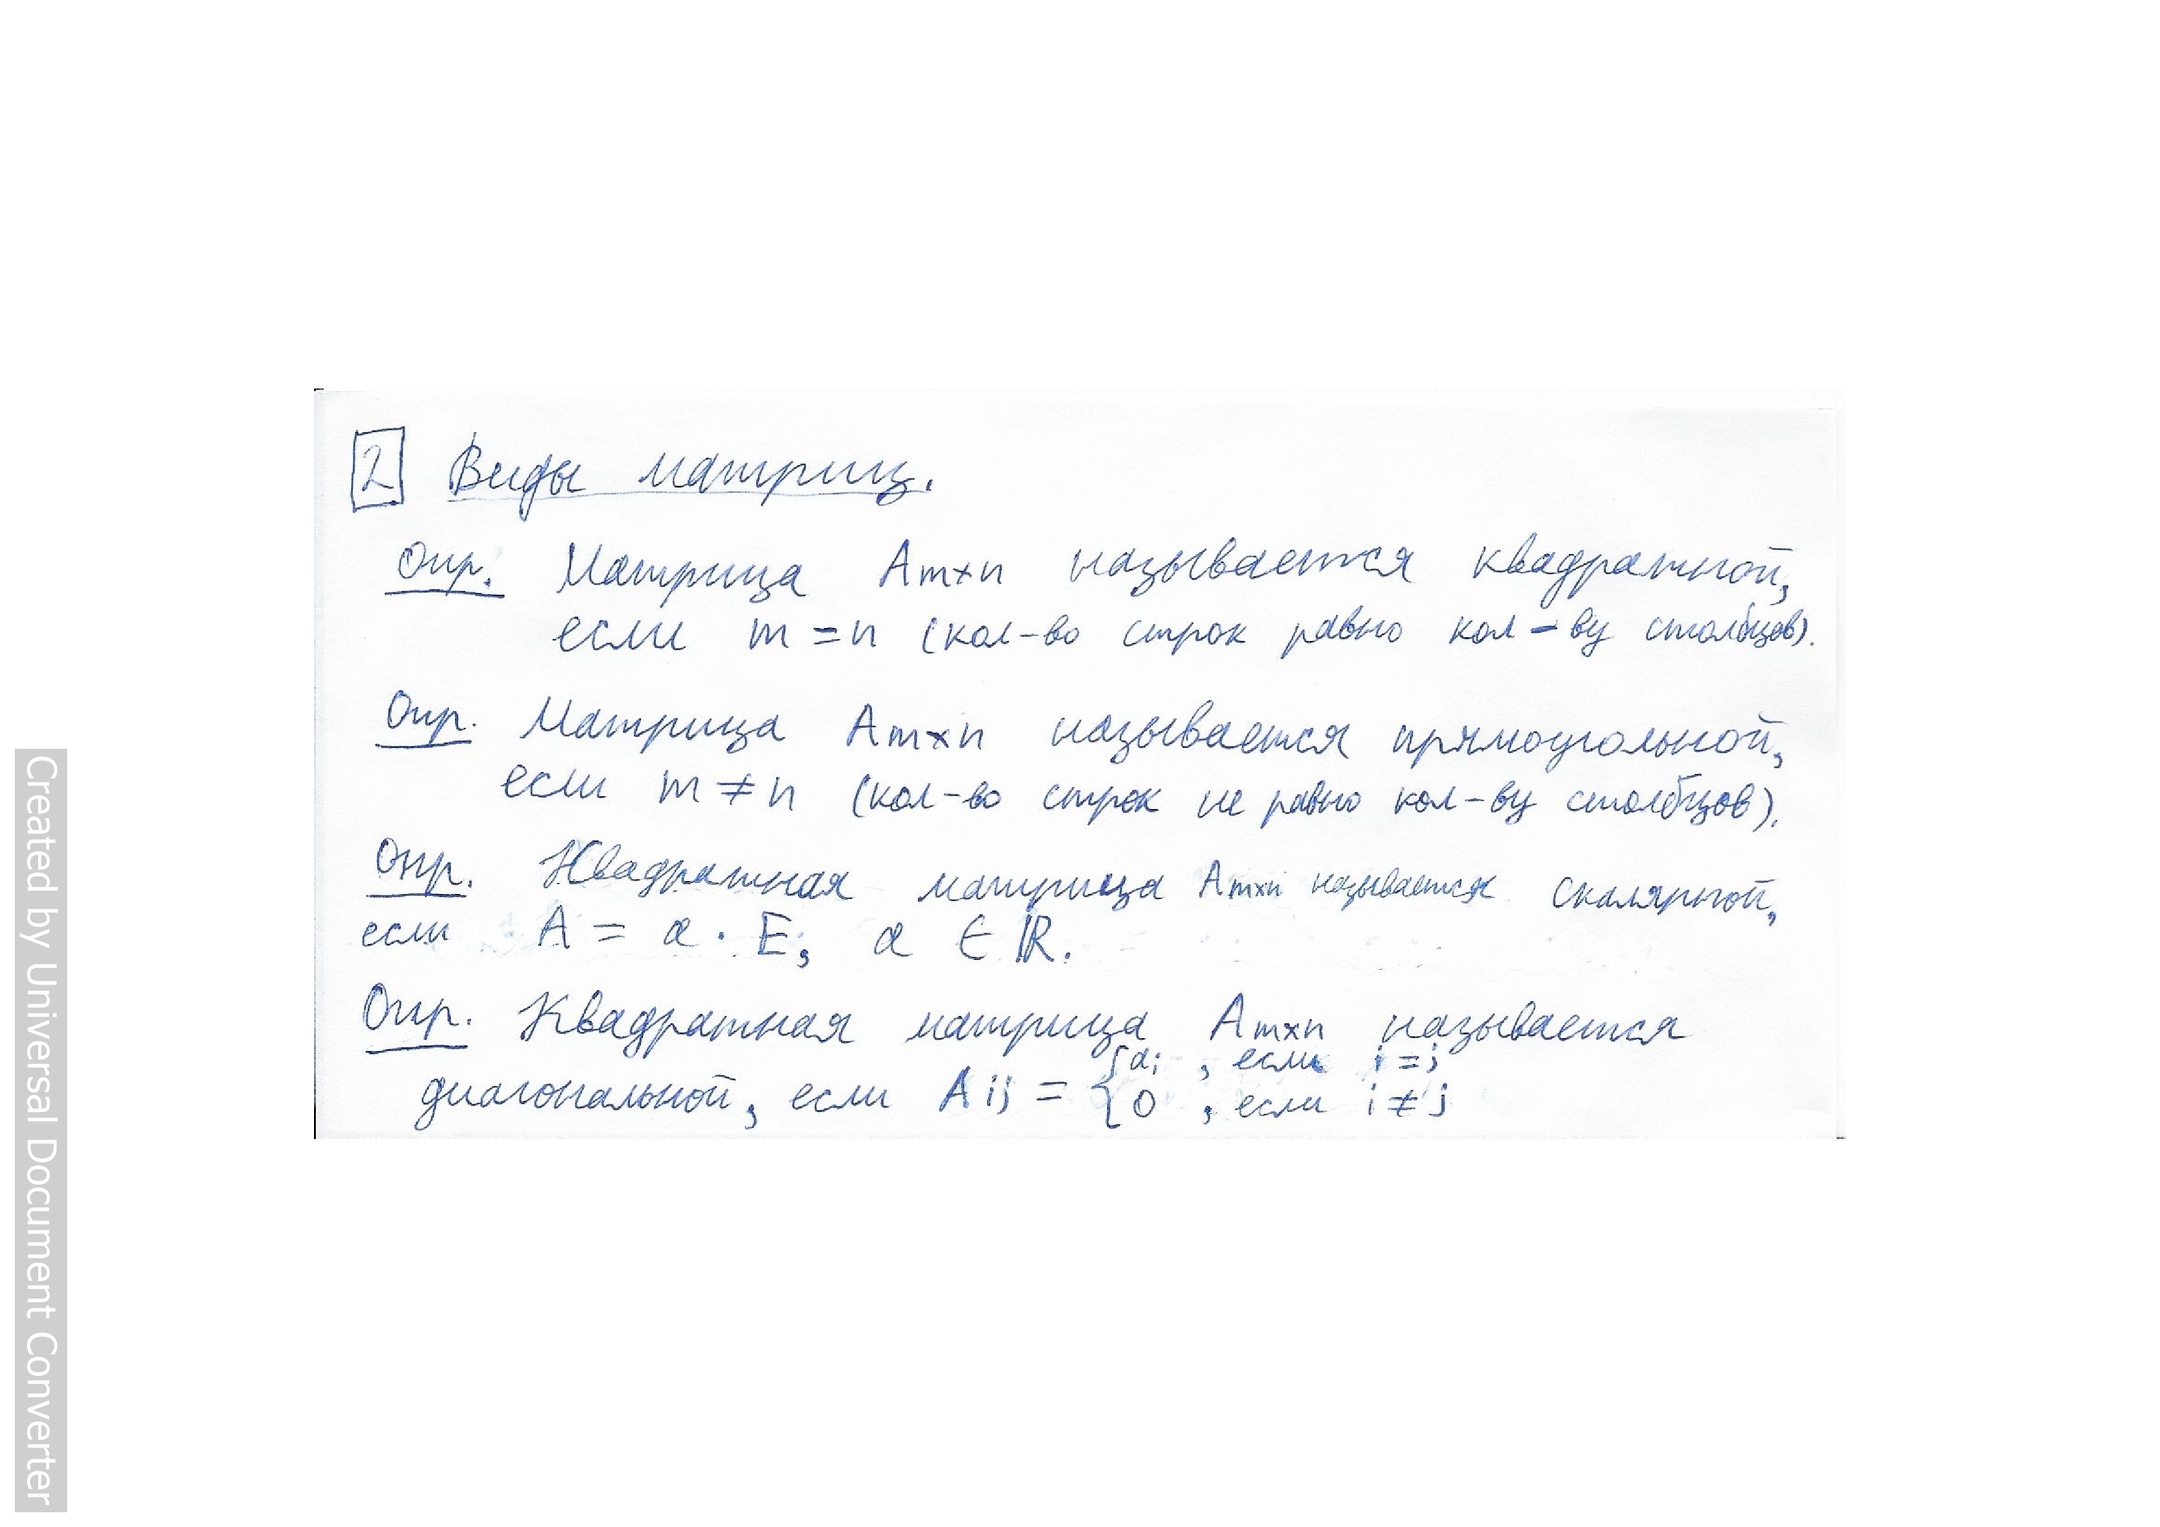 2 Виды матриц.
Опр. Матрица Am×n называется квадратной,
если m = n (кол-во строк равно кол-ву столбцов).
Опр. Матрица Am×n называется прямоугольной,
если m ≠ n (кол-во строк не равно кол-ву столбцов).
Опр. Квадратная матрица Am×n называется скалярной,
если A = α · E, α ∈ ℝ.
Опр. Квадратная матрица Am×n называется
диагональной, если Aij = { αi , если i = j
0 , если i ≠ j
Created by Universal Document Converter